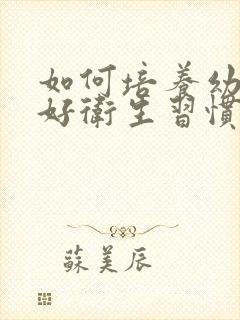 如何培養幼
好衛生習慣
蘇美辰